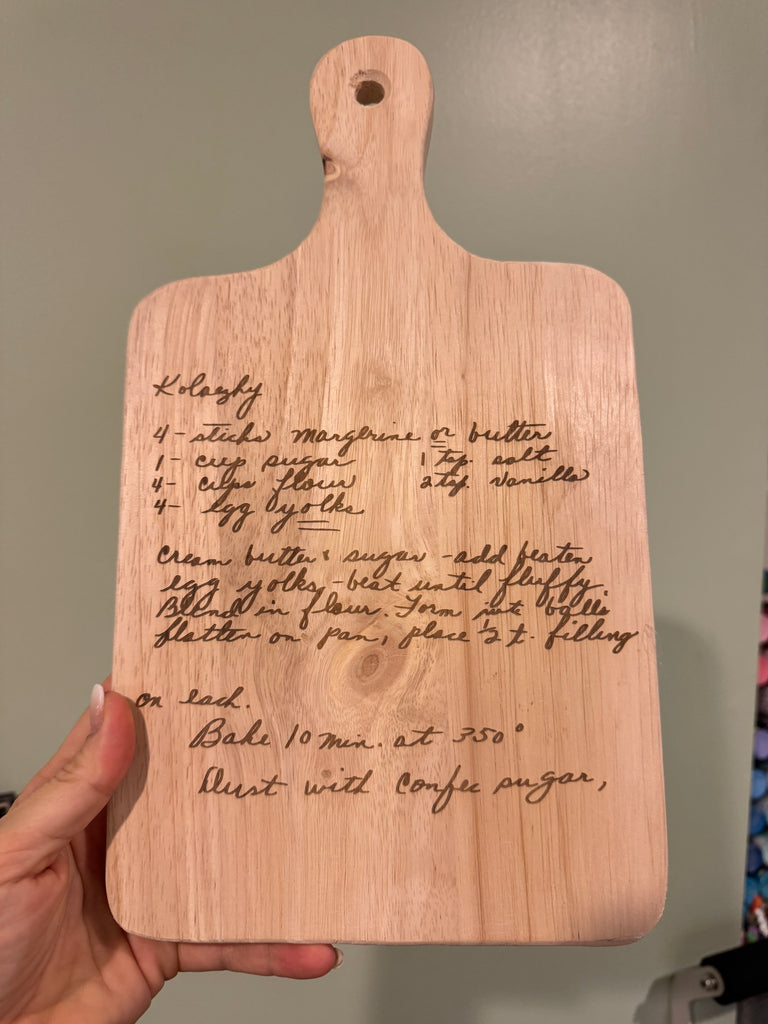 Kolaezhy
4 - sticks margerine or butter
1 - cup sugar 1 tsp. salt
4 - cups flour 2 tsp. vanilla
4 - egg yolks
Cream butter & sugar - add beaten
egg yolks, - beat until fluffy.
Blend in flour. Form into balls
flatten on pan, place ½ t. filling
on each.
Bake 10 min. at 350°
Dust with confec sugar,